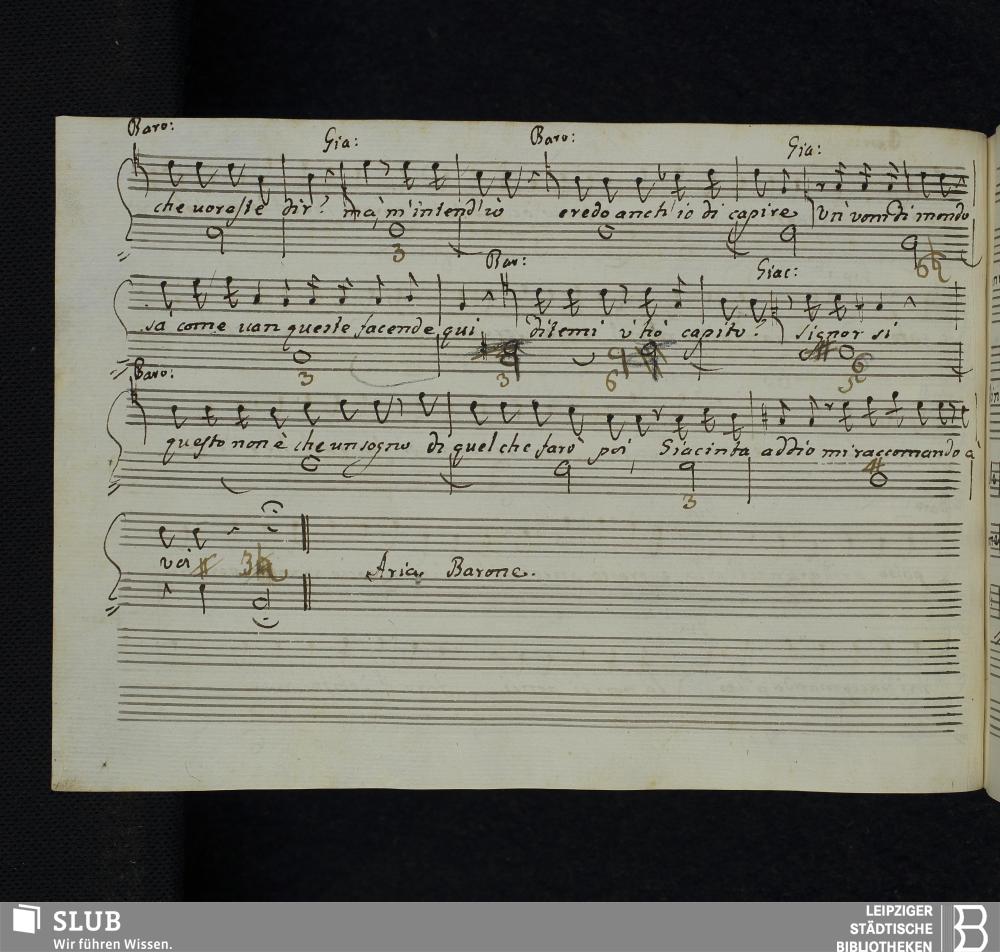 Baro: Gia: Baro: Gia:
che uoreste dir? ma m'intend'io credo anch'io di capire Un' vom di mondo
3 6
Bar: Giac:
sa come uan queste facende qui ditemi v'hò capito? signor si
3 3 6 6 5
Baro:
questo non è che un sogno di quel che farò poi Giacinta addio mi raccomando à
3 4
voi 3 Aria Barone.
SLUB
Wir führen Wissen.
LEIPZIGER
STÄDTISCHE
BIBLIOTHEKEN